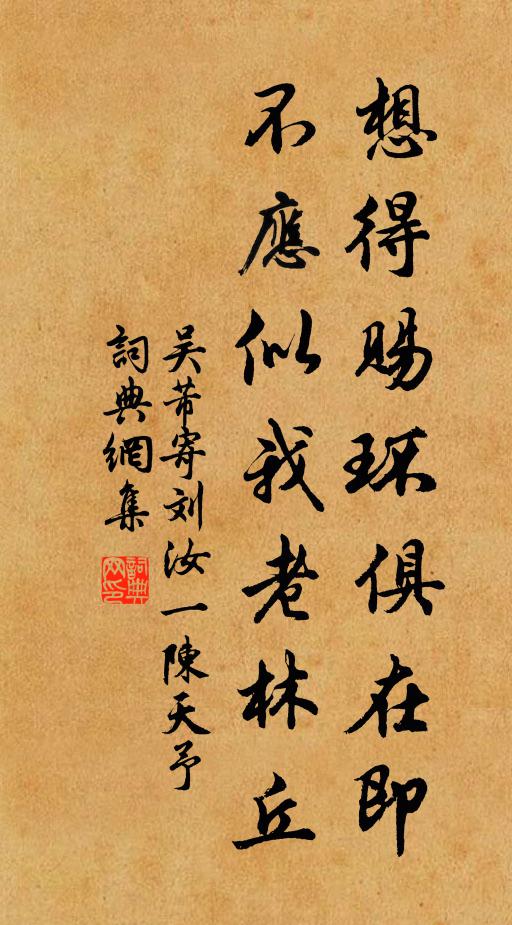 想得賜环俱在即
不應似我老林丘
吴芾寄刘汝一陳天予
詞典網集
詞典网印